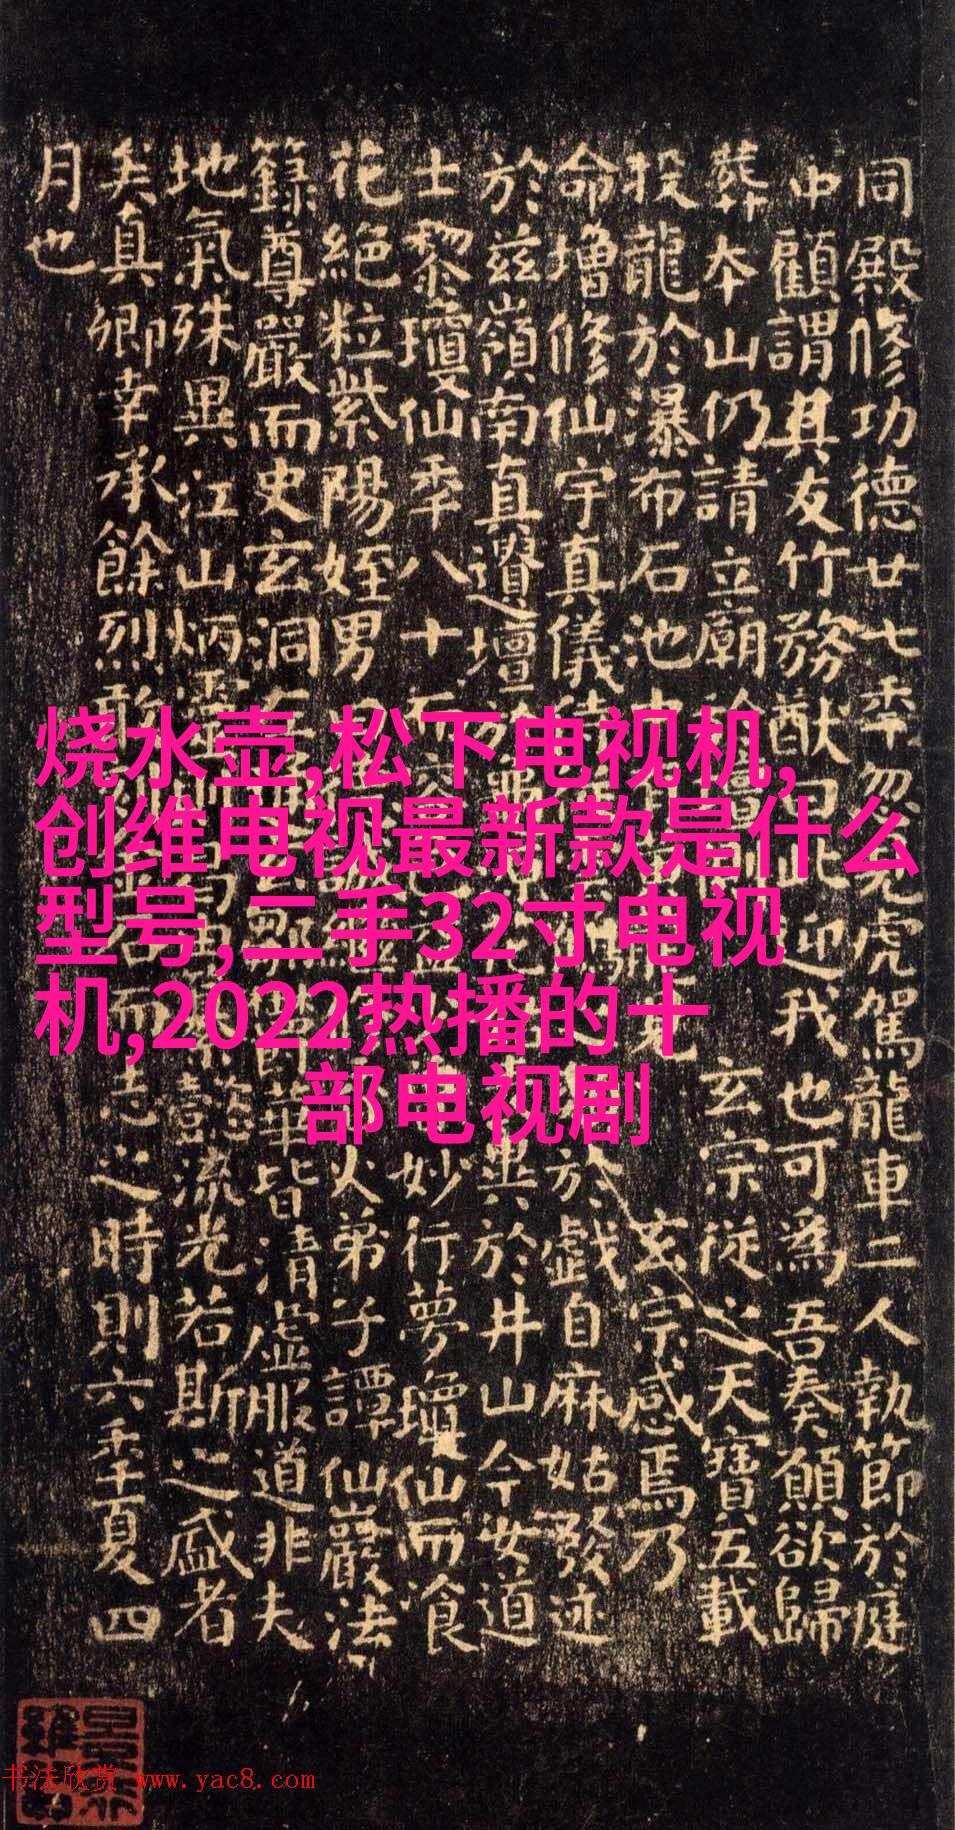 烧水壶,松下电视机,
创维电视最新款是什么
型号,二手32寸电视
机,2022热播的十
部电视剧
同殿修功德廿七年忽見虎駕龍車二人執節於庭
中顧謂其友竹務猷曰此迎我也可為吾奏願欲歸
葬本山仍請立廟玄宗從之天寶五載
投龍於瀑布石池見玄宗感焉乃
命增修仙宇真儀侍於戲自麻姑發迹
於茲嶺南真遺壇於異於井山今女道
士黎瓊仙年八十而容妙行夢瓊仙而飡
花絕粒紫陽姪男曰火弟子譚仙巖法
籙尊嚴而史玄洞左鄒華皆清虛服道非夫
地氣殊異江山炳靈懿流光若斯之盛者
矣真卿幸承餘烈敢而志之時則六年夏四
月也
书法欣赏 www.yac8.com